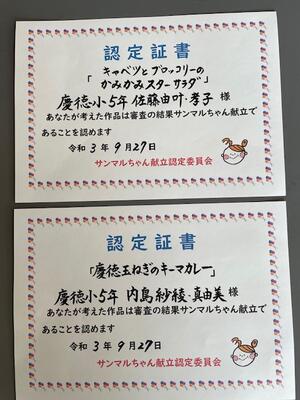 認定証書
「キャベツとブロッコリーの
かみかみスターサラダ」
慶徳小5年 佐藤由叶・孝子 様
あなたが考えた作品は審査の結果サンマルちゃん献立で
あることを認めます
令和 3 年 9 月 27 日
サンマルちゃん献立認定委員会
認定証書
「慶徳玉ねぎのキーマカレー」
慶徳小5年 内島紗綾・真由美 様
あなたが考えた作品は審査の結果サンマルちゃん献立で
あることを認めます
令和 3 年 9 月 27 日
サンマルちゃん献立認定委員会